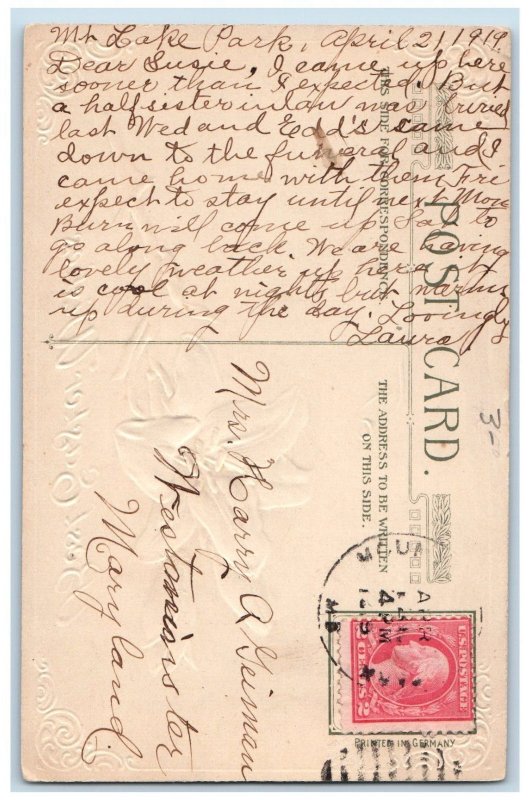 Mt Lake Park, April 21 1919
Dear Susie, I came up here
sooner than I expected. But
a half sister in law was buried
last Wed and Edd's came
down to the funeral and I
came home with them Fri
expect to stay until next Mon
Burn will come up Sat to
go along back. We are having
lovely weather up here it
is cool at nights but warms
up during the day. Lovingly
Laura
THIS SIDE FOR CORRESPONDENCE
POST CARD.
THE ADDRESS TO BE WRITTEN
ON THIS SIDE.
Mrs. Harry A Geiman
Westminister
Maryland.
3-
APR
4 PM
MD
U.S. POSTAGE
2 CENTS 2
PRINTED IN GERMANY